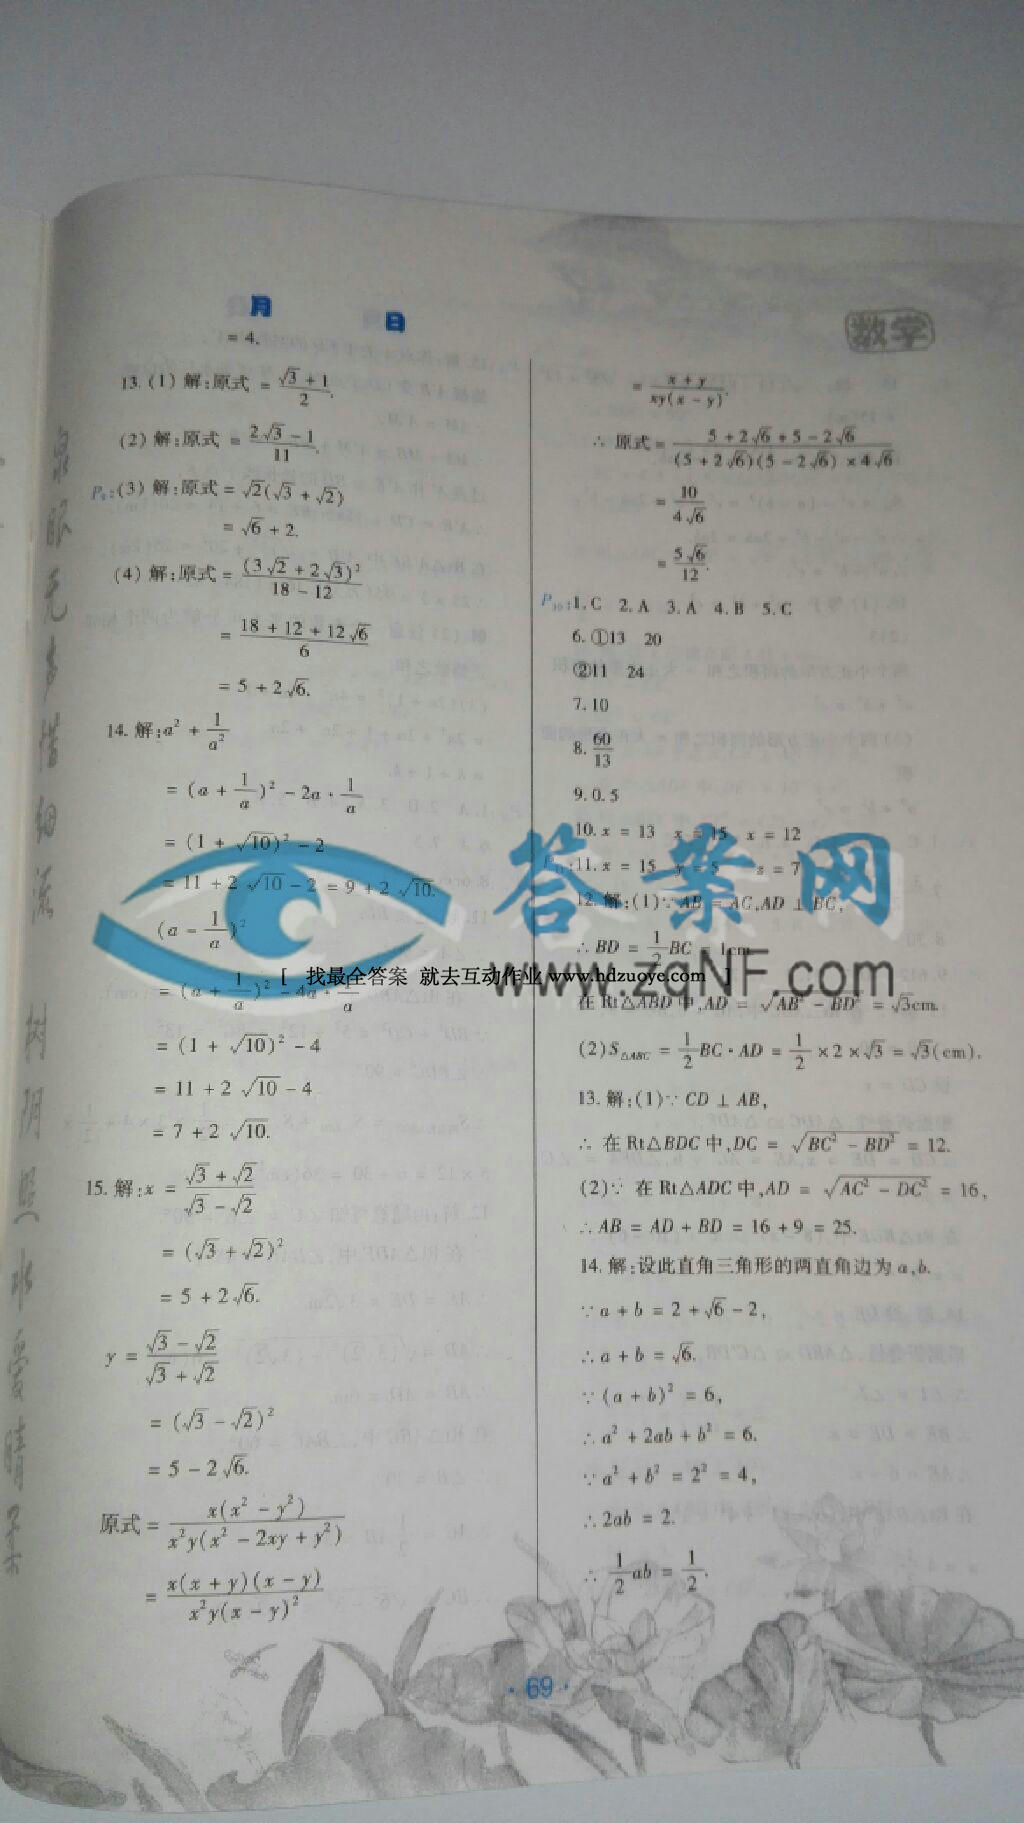 月 日
数学
= 4.
13. (1) 解:原式 = (√3 + 1)/2.
(2) 解:原式 = (2√3 - 1)/11.
P9:(3) 解:原式 = √2(√3 + √2)
= √6 + 2.
(4) 解:原式 = (3√2 + 2√3)²/(18 - 12)
= (18 + 12 + 12√6)/6
= 5 + 2√6.
14. 解:a² + 1/a²
= (a + 1/a)² - 2a · 1/a
= (1 + √10)² - 2
= 11 + 2√10 - 2 = 9 + 2√10.
(a - 1/a)²
= (a + 1/a)² - 4a · 1/a
= (1 + √10)² - 4
= 11 + 2√10 - 4
= 7 + 2√10.
15. 解:x = (√3 + √2)/(√3 - √2)
= (√3 + √2)²
= 5 + 2√6.
y = (√3 - √2)/(√3 + √2)
= (√3 - √2)²
= 5 - 2√6.
原式 = x(x² - y²)/x²y(x² - 2xy + y²)
= x(x + y)(x - y)/x²y(x - y)²
= (x + y)/xy(x - y).
∴ 原式 = (5 + 2√6 + 5 - 2√6)/(5 + 2√6)(5 - 2√6) × 4√6
= 10/4√6
= 5√6/12.
P10:1. C 2. A 3. A 4. B 5. C
6. ①13 20
②11 24
7. 10
8. 60/13
9. 0.5
10. x = 13 x = 15 x = 12
P11:11. x = 15 y = 5 z = 7
12. 解:(1)∵ AB = AC,AD ⊥ BC,
∴ BD = 1/2 BC = 1cm
在 Rt△ABD 中,AD = √(AB² - BD²) = √3cm.
(2)S△ABC = 1/2 BC · AD = 1/2 × 2 × √3 = √3(cm).
13. 解:(1)∵ CD ⊥ AB,
∴ 在 Rt△BDC 中,DC = √(BC² - BD²) = 12.
(2)∵ 在 Rt△ADC 中,AD = √(AC² - DC²) = 16,
∴ AB = AD + BD = 16 + 9 = 25.
14. 解:设此直角三角形的两直角边为 a,b.
∵ a + b = 2 + √6 - 2,
∴ a + b = √6.
∵ (a + b)² = 6,
∴ a² + 2ab + b² = 6.
∵ a² + b² = 2² = 4,
∴ 2ab = 2.
∴ 1/2 ab = 1/2.
· 69 ·
泉眼无声惜细流 树阴照水爱晴柔
答案网
www.zqNF.com
[ 找最全答案 就去互动作业 www.hdzuoye.com ]